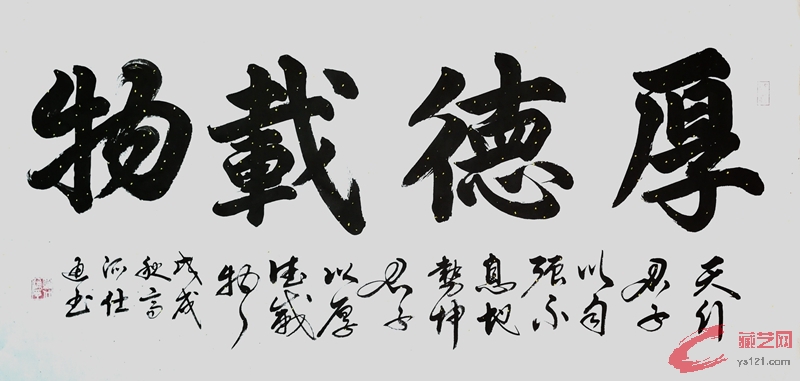 厚德載物
天行
君子
以自
强不
息地
勢坤
君子
以厚
德載
物
戊戌
秋高
仕
通书
藏艺网
ys121.com